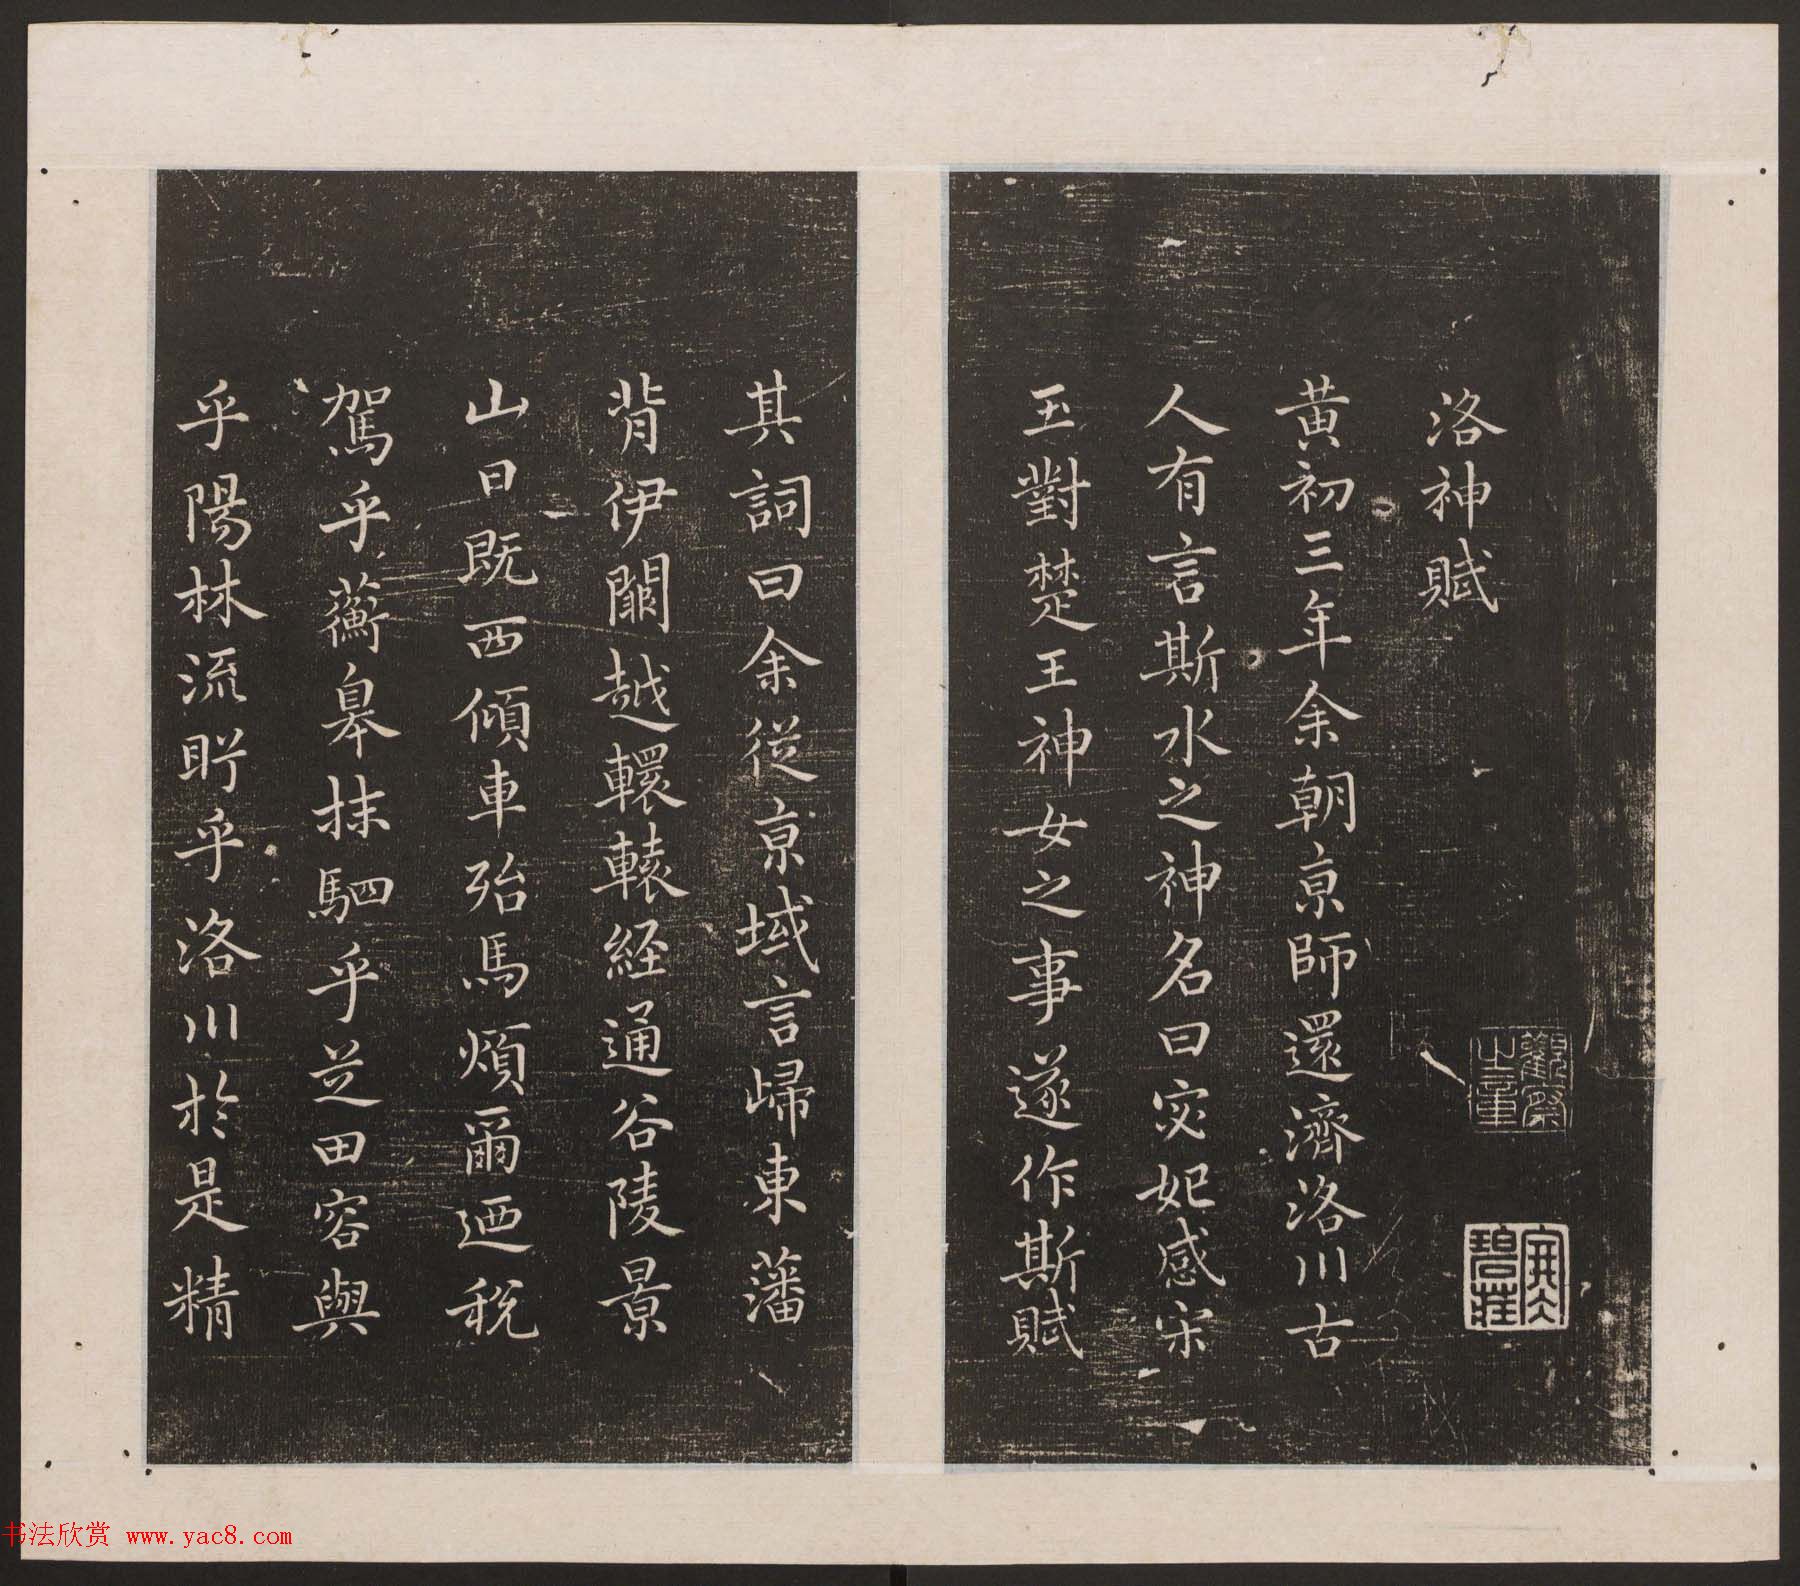 洛神賦
黄初三年余朝亰師還濟洛川古
人有言斯水之神名曰宓妃感宋
玉對楚王神女之事遂作斯賦
其詞曰余從亰域言歸東藩
背伊闕越轘轅経通谷陵景
山日既西傾車殆馬煩爾迺税
駕乎蘅皋抹駟乎芝田容與
乎陽林流盻乎洛川於是精
书法欣赏 www.yac8.com